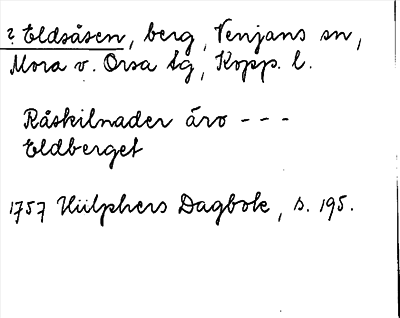 ? Eldsåsen, berg, Venjans sn,
Mora v. Orsa tg, Kopp. l.
Råskilnader äro - - -
Eldberget
1757 Hülphers Dagbok, s. 195.